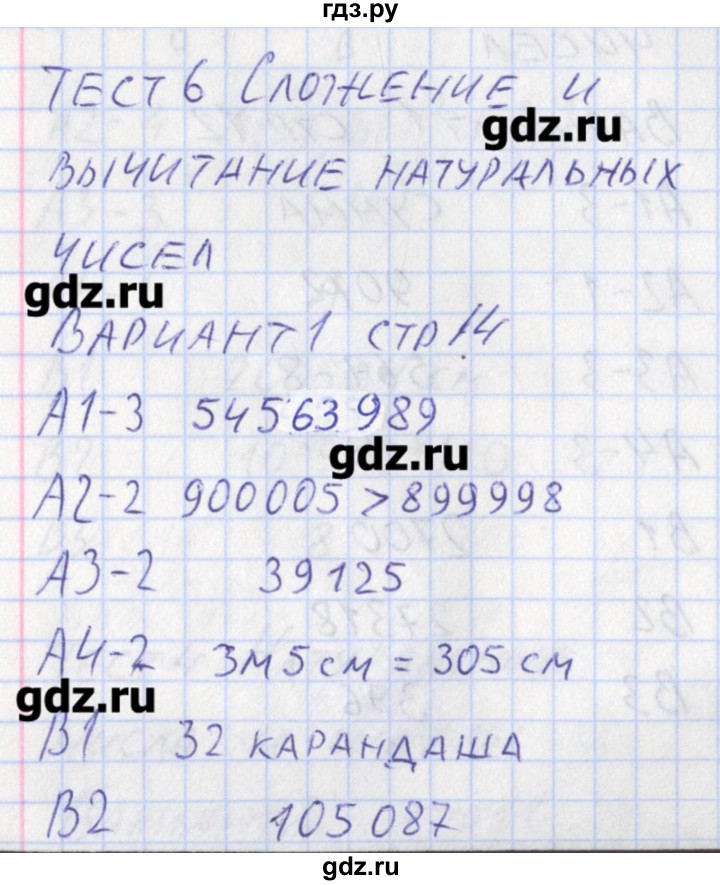 гдз.ру
ТЕСТ 6 СЛОЖЕНИЕ И
gdz.ru
ВЫЧИТАНИЕ НАТУРАЛЬНЫХ
ЧИСЕЛ
gdz.ru
ВАРИАНТ 1 СТР 14
А1-3 54563989
gdz.ru
А2-2 900005 > 899998
А3-2 39125
А4-2 3м 5 см = 305 см
gdz.ru
В1 32 КАРАНДАША
В2 105087
gdz.ru